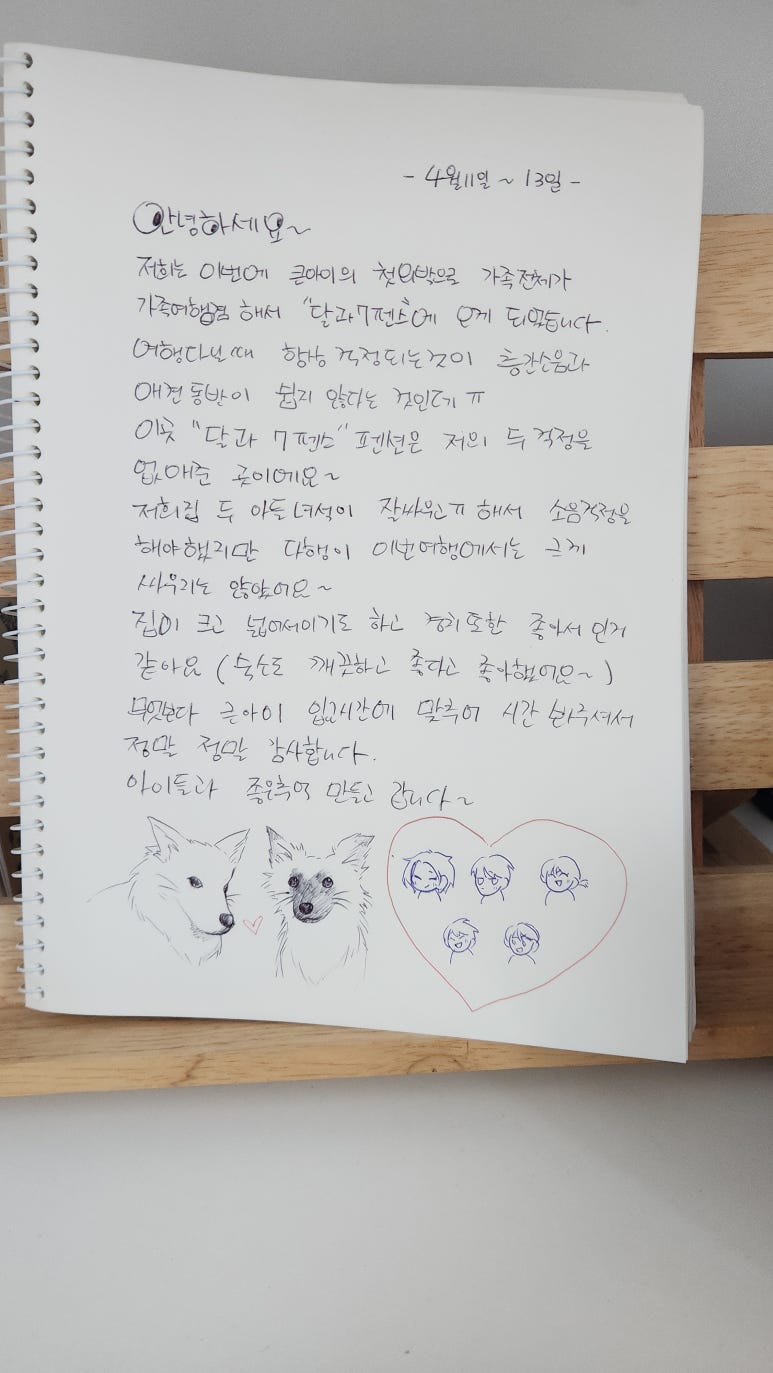 - 4월11일 ~ 13일 -
안녕하세요~
저희는 이번에 큰아이의 첫외박으로 가족전체가
가족여행겸 해서 "달과7펜스"에 오게 되었습니다.
여행다닐때 항상 걱정되는것이 층간소음과
애견동반이 쉽지 않다는 것인데 ㅠ
이곳 "달과 7펜스" 펜션은 저의 두걱정을
없애준 곳이에요~
저희집 두 아들녀석이 잘싸우고ㅠ 해서 소음걱정을
해야했지만 다행이 이번여행에서는 크게
싸우지는 않았어요~
집이 크고 넓어서이기도 하고 경치또한 좋아서 인거
같아요 (숙소도 깨끗하고 좋다고 좋아했어요~)
무엇보다 큰아이 입교시간에 맞추어 시간 봐주셔서
정말 정말 감사합니다.
아이들과 좋은추억 만들고 갑니다~